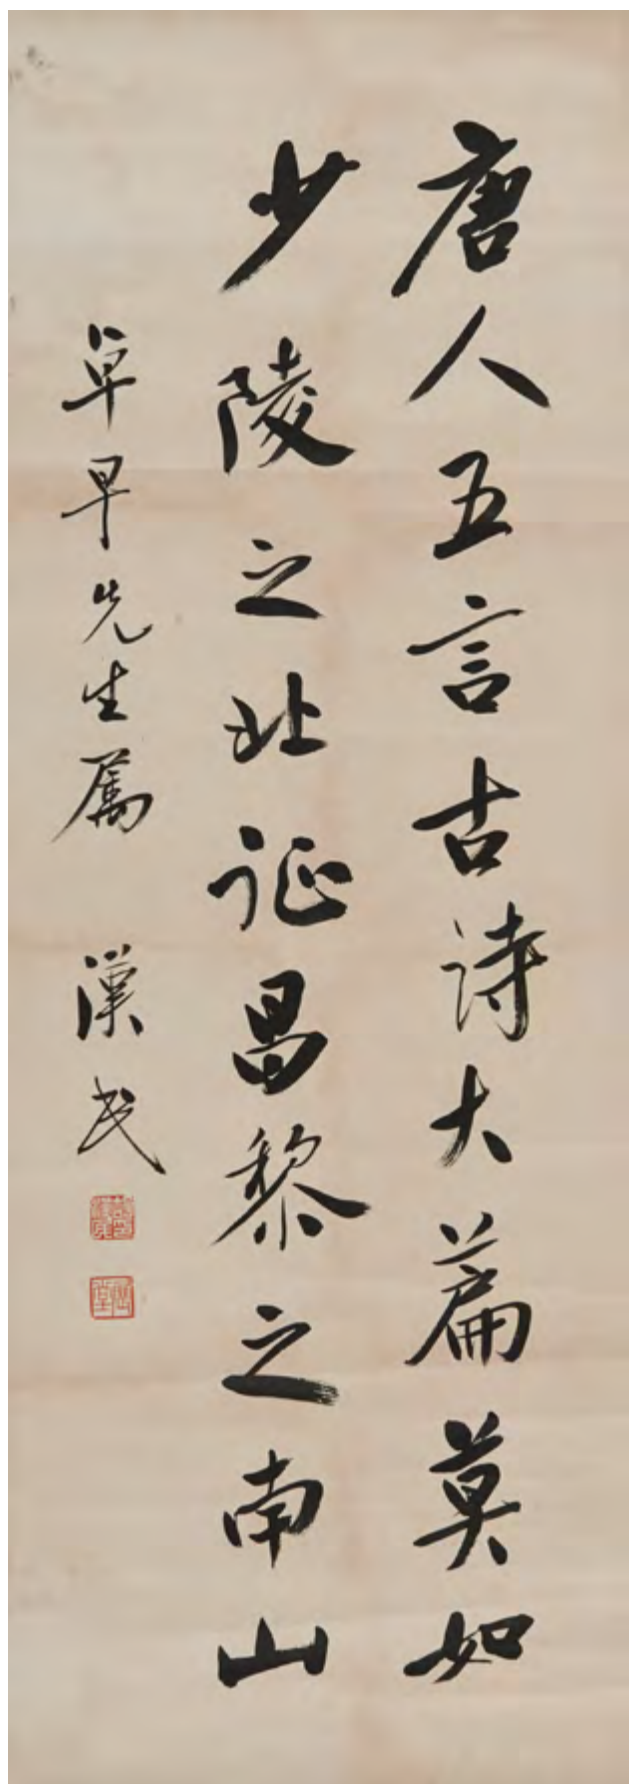 唐人五言古詩大篇莫如
少陵之北征昌黎之南山
草早先生属
漢民